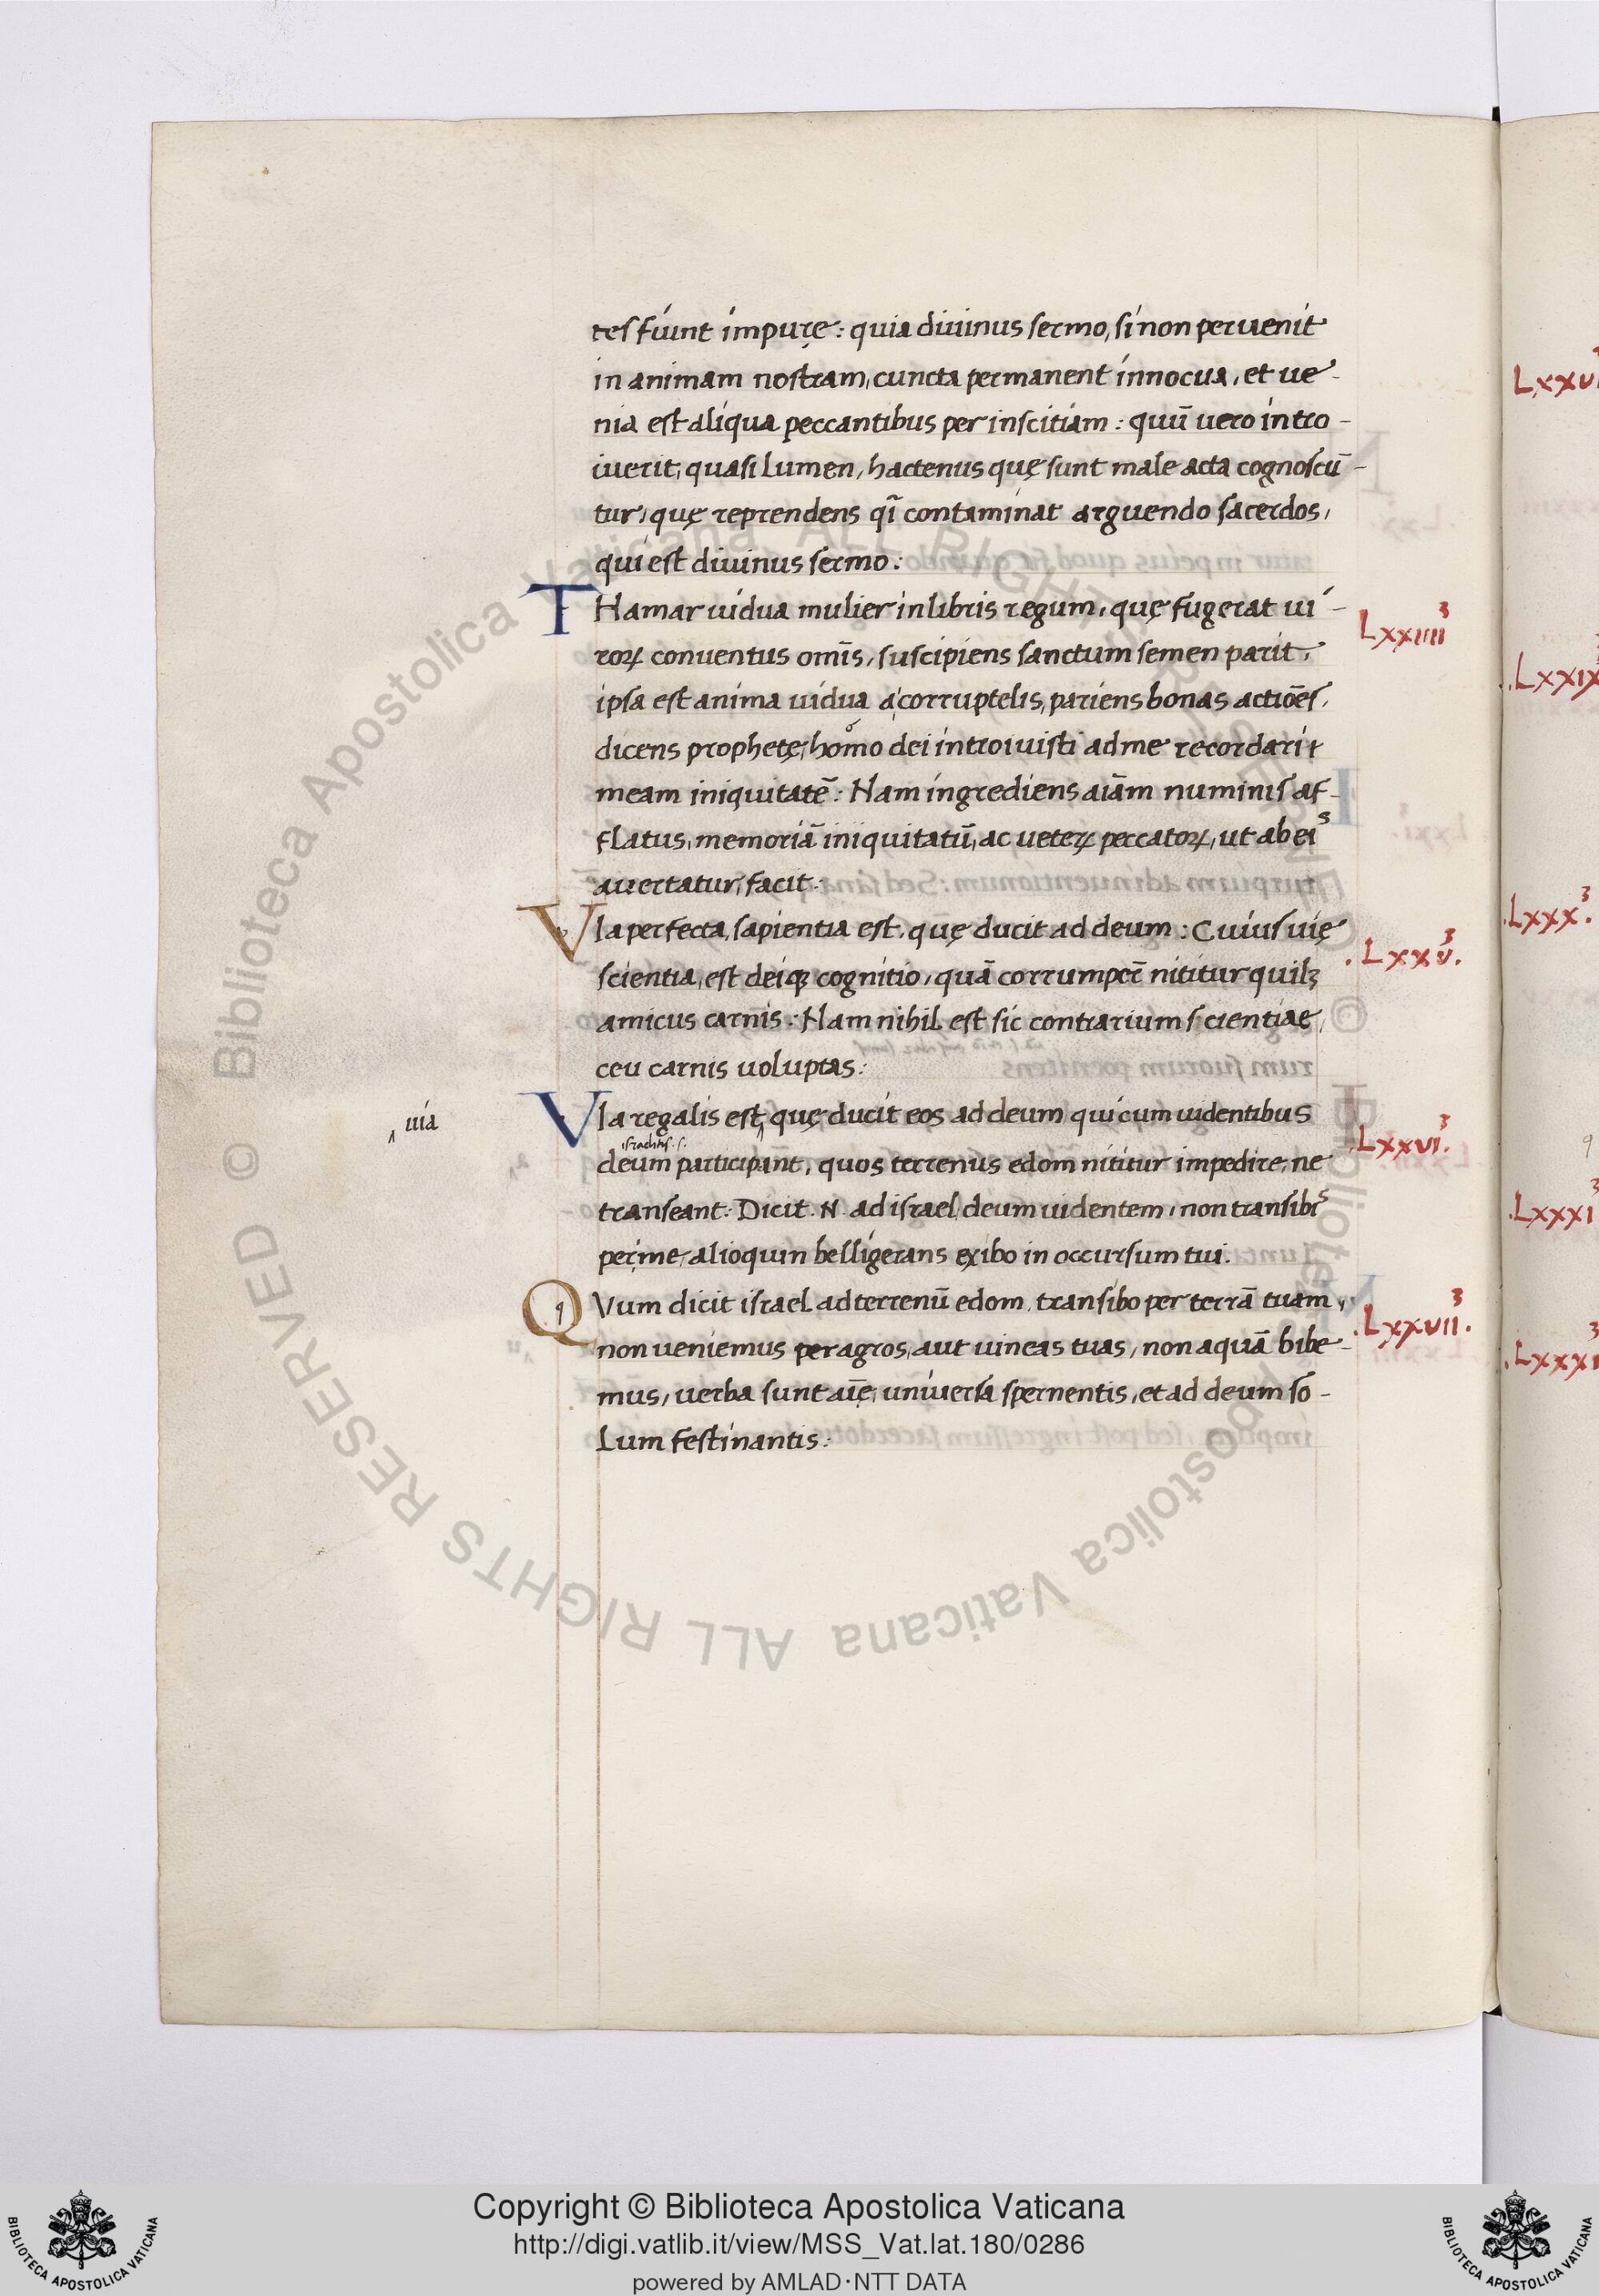 tes fiunt impurę: quia diuinus sermo, si non peruenit
in animam nostram, cuncta permanent innocua, et ue-
nia est aliqua peccantibus per inscitiam: quū uero intro-
iuerit, quasi lumen, hactenus quę sunt male acta cognoscū-
tur, quę reprendens qī contaminat arguendo sacerdos,
qui est diuinus sermo:
THamar uidua mulier in libris regum, quę fugerat ui- Lxxiiii3
roꝝ conuentus omīs, suscipiens sanctum semen parit,
ipsa est anima uidua a corruptelis, pariens bonas actiōes,
dicens prophetę, homo dei introiuisti ad me recordari
meam iniquitatē: Nam ingrediens aīam numinis af-
flatus, memoriā iniquitatū, ac ueteꝝ peccatoꝝ, ut ab eis
auertatur, facit:
VIa perfecta, sapientia est, quę ducit ad deum: Cuius uię .Lxxv3.
scientia, est deiqꝫ cognitio, quā corrumpeē nititur quilꝫ
amicus carnis: Nam nihil est sic contrarium scientiae,
ceu carnis uoluptas:
VIa regalis est, quę ducit eos ad deum qui cum uidentibus
‸ uia
israelitis .s.
deum participant, quos terrenus edom nititur impedire, ne .Lxxvi3.
transeant: Dicit .N. ad israel deum uidentem, non transibis
per me, alioquin belligerans exibo in occursum tui.
QVum dicit israel ad terrenū edom, transibo per terrā tuam, .Lxxvii3.
non ueniemus per agros, aut uineas tuas, non aquā bibe-
mus, uerba sunt aīę, uniuersa spernentis, et ad deum so-
lum festinantis:
Lxxvi
.Lxxix
.Lxxx3.
.Lxxxi3
.Lxxxi3
© Biblioteca Apostolica Vaticana ALL RIGHTS RESERVED
Copyright © Biblioteca Apostolica Vaticana
http://digi.vatlib.it/view/MSS_Vat.lat.180/0286
powered by AMLAD·NTT DATA
BIBLIOTECA APOSTOLICA VATICANA
BIBLIOTECA APOSTOLICA VATICANA